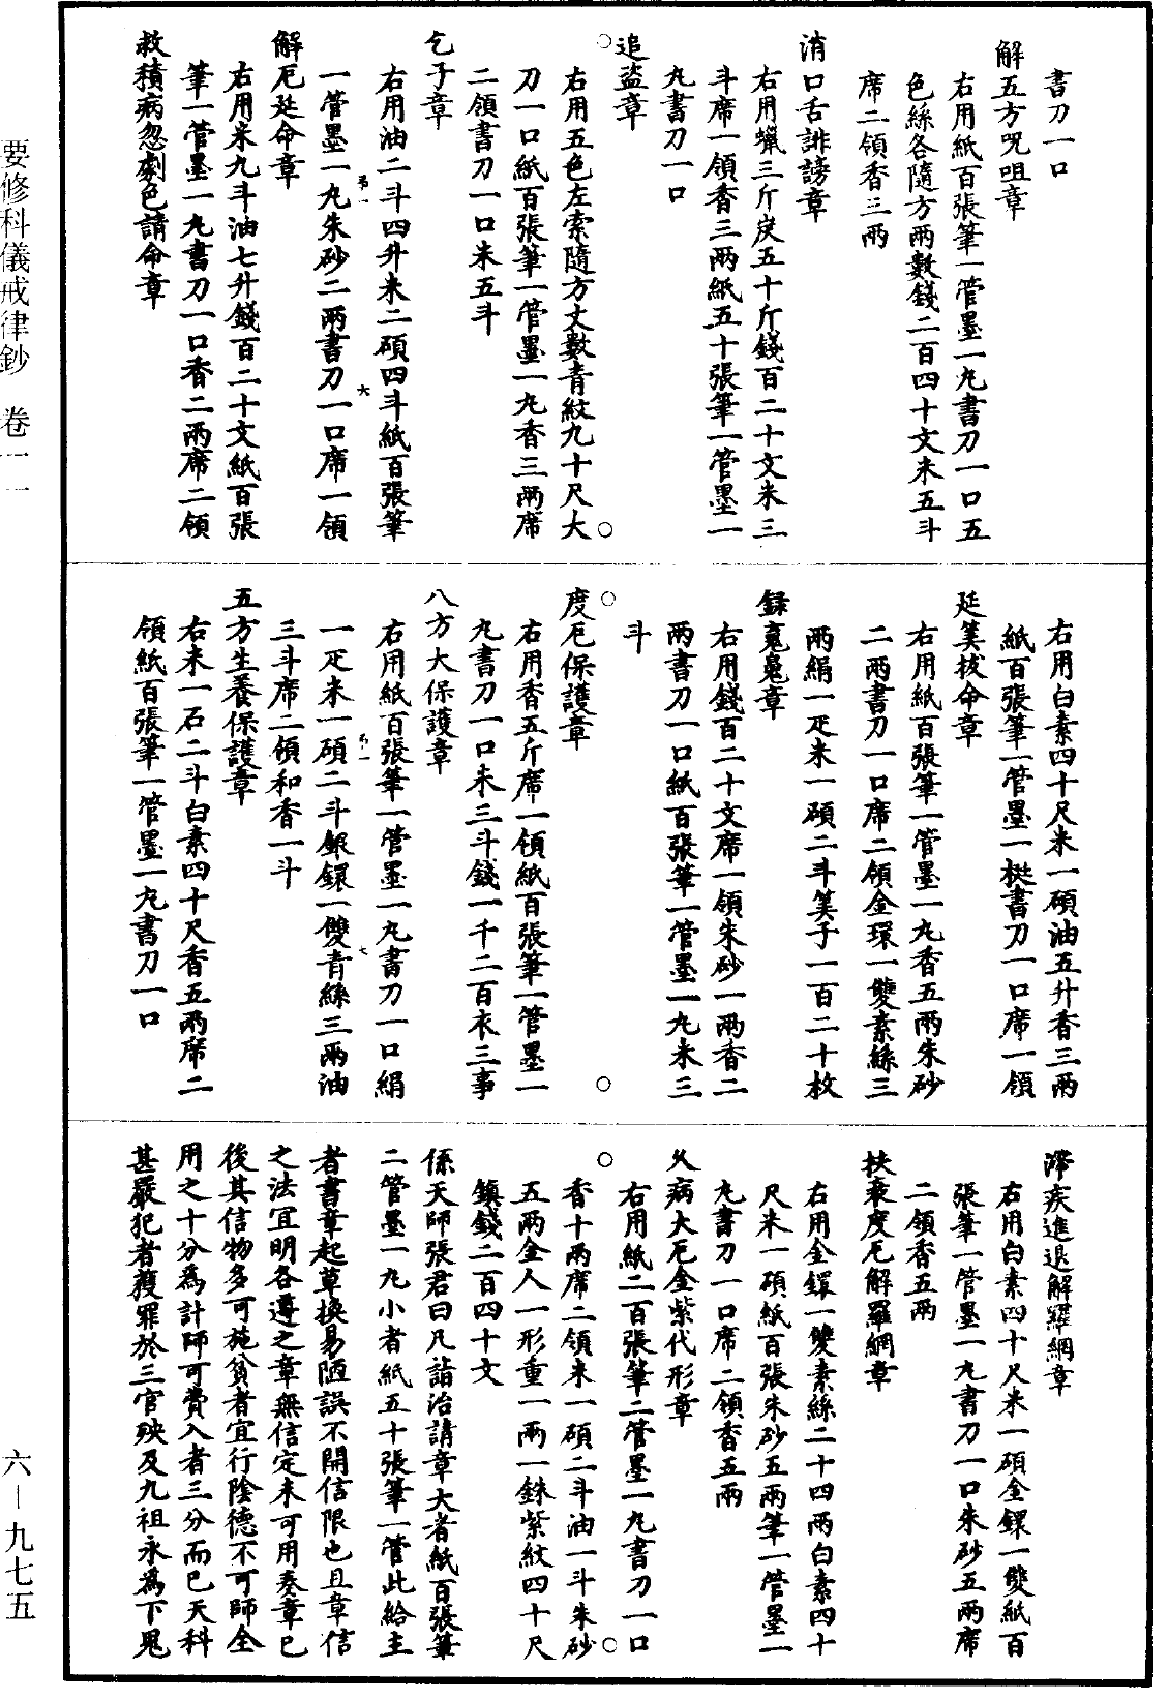 書刀一口
解五方咒咀章
右用紙百張筆一管墨一丸書刀一口五
色絲各隨方兩數錢二百四十文米五斗
席二領香三兩
消口舌誹謗章
右用蠟三斤炭五十斤錢百二十文米三
斗席一領香三兩紙五十張筆一管墨一
丸書刀一口
追盜章
右用五色左索隨方丈數青紋九十尺大
刀一口紙百張筆一管墨一丸香三兩席
二領書刀一口米五斗
乞子章
右用油二斗四升米二碩四斗紙百張筆
一管墨一丸朱砂二兩書刀一口席一領
解厄延命章
右用米九斗油七升錢百二十文紙百張
筆一管墨一丸書刀一口香二兩席二領
救積病忽劇色請命章
右用白素四十尺米一碩油五升香三兩
紙百張筆一管墨一梃書刀一口席一領
延筭拔命章
右用紙百張筆一管墨一丸香五兩朱砂
二兩書刀一口席二領金環一雙素絲三
兩絹一疋米一碩二斗筭子一百二十枚
錄魂章
右用錢百二十文席一領朱砂一兩香二
兩書刀一口紙百張筆一管墨一丸米三
斗
度厄保護章
右用香五斤席一領紙百張筆一管墨一
丸書刀一口米三斗錢一千二百衣三事
八方大保護章
右用紙百張筆一管墨一丸書刀一口絹
一疋米一碩二斗銀鐶一雙青絲三兩油
三斗席二領和香一斗
五方生養保護章
右米一石二斗白素四十尺香五兩席二
領紙百張筆一管墨一丸書刀一口
滯疾進退解羅網章
右用白素四十尺米一碩金鐶一雙紙百
張筆一管墨一丸書刀一口朱砂五兩席
二領香五兩
扶衰度厄解羅網章
右用金鐶一雙素絲二十四兩白素四十
尺米一碩紙百張朱砂五兩筆一管墨一
丸書刀一口席二領香五兩
久病大厄金紫代形章
右用紙二百張筆二管墨一丸書刀一口
香十兩席二領米一碩二斗油一斗朱砂
五兩金人一形重一兩一銖紫紋四十尺
鎮錢二百四十文
係天師張君曰凡詣治請章大者紙百張筆
二管墨一丸小者紙五十張筆一管此給主
者書章起草換易陋誤不開信限也且章信
之法宜明各遵之章無信定未可用奏章已
後其信物多可施貧者宜行陰德不可師全
用之十分為計師可費入者三分而已天科
甚嚴犯者獲罪於三官殃及九祖永為下鬼
要修科儀戒律鈔 卷一一
六一九七五